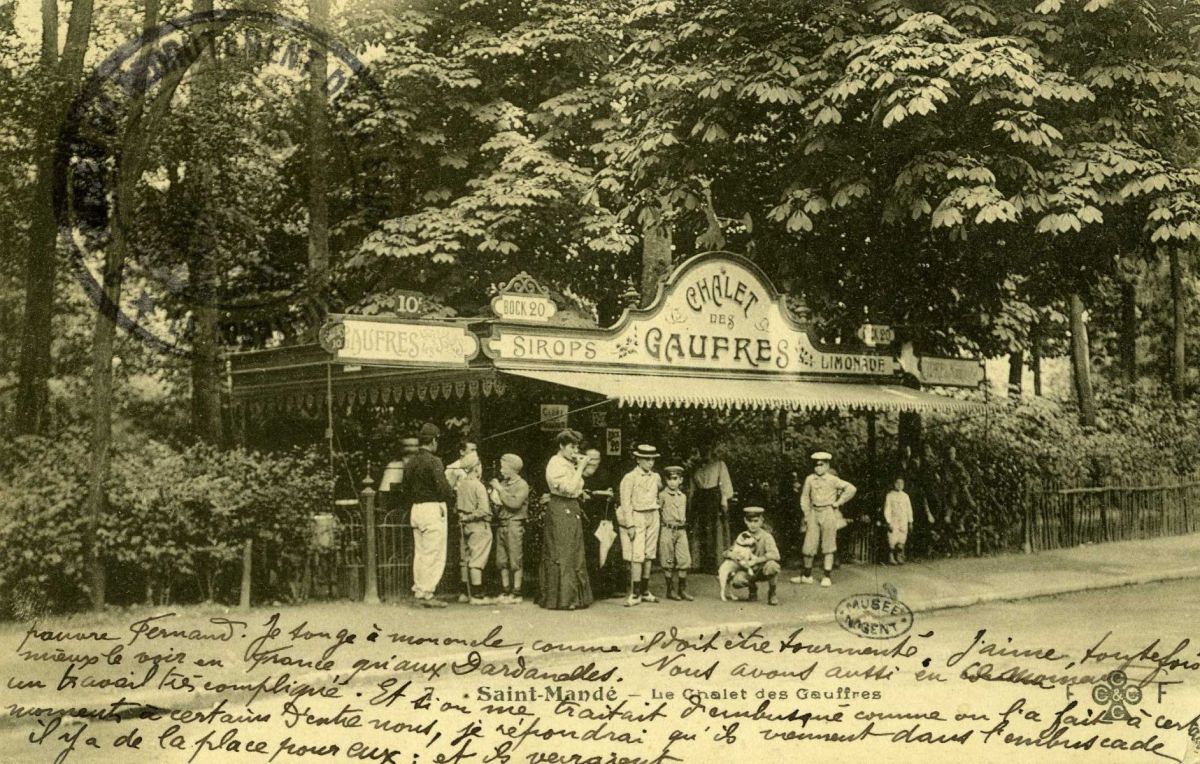 10c
BOCK 20
CHALET
DES
GAUFRES
SIROPS
LIMONADE
GAUFRES
MUSÉE
NOGENT
pauvre Fernand. Je songe à mon oncle, comme il doit être tourmenté. J'aime, toutefois
mieux le voir en France qu'aux Dardanelles. Nous avons aussi en ce moment
un travail très compliqué. Et si on me traitait d'embusqué comme on l'a fait à certains
Saint-Mandé – Le Chalet des Gauffres
moments à certains d'entre nous, je répondrai qu'ils viennent dans l'embuscade
il y a de la place pour eux ; et ils verraient
F CCCC F